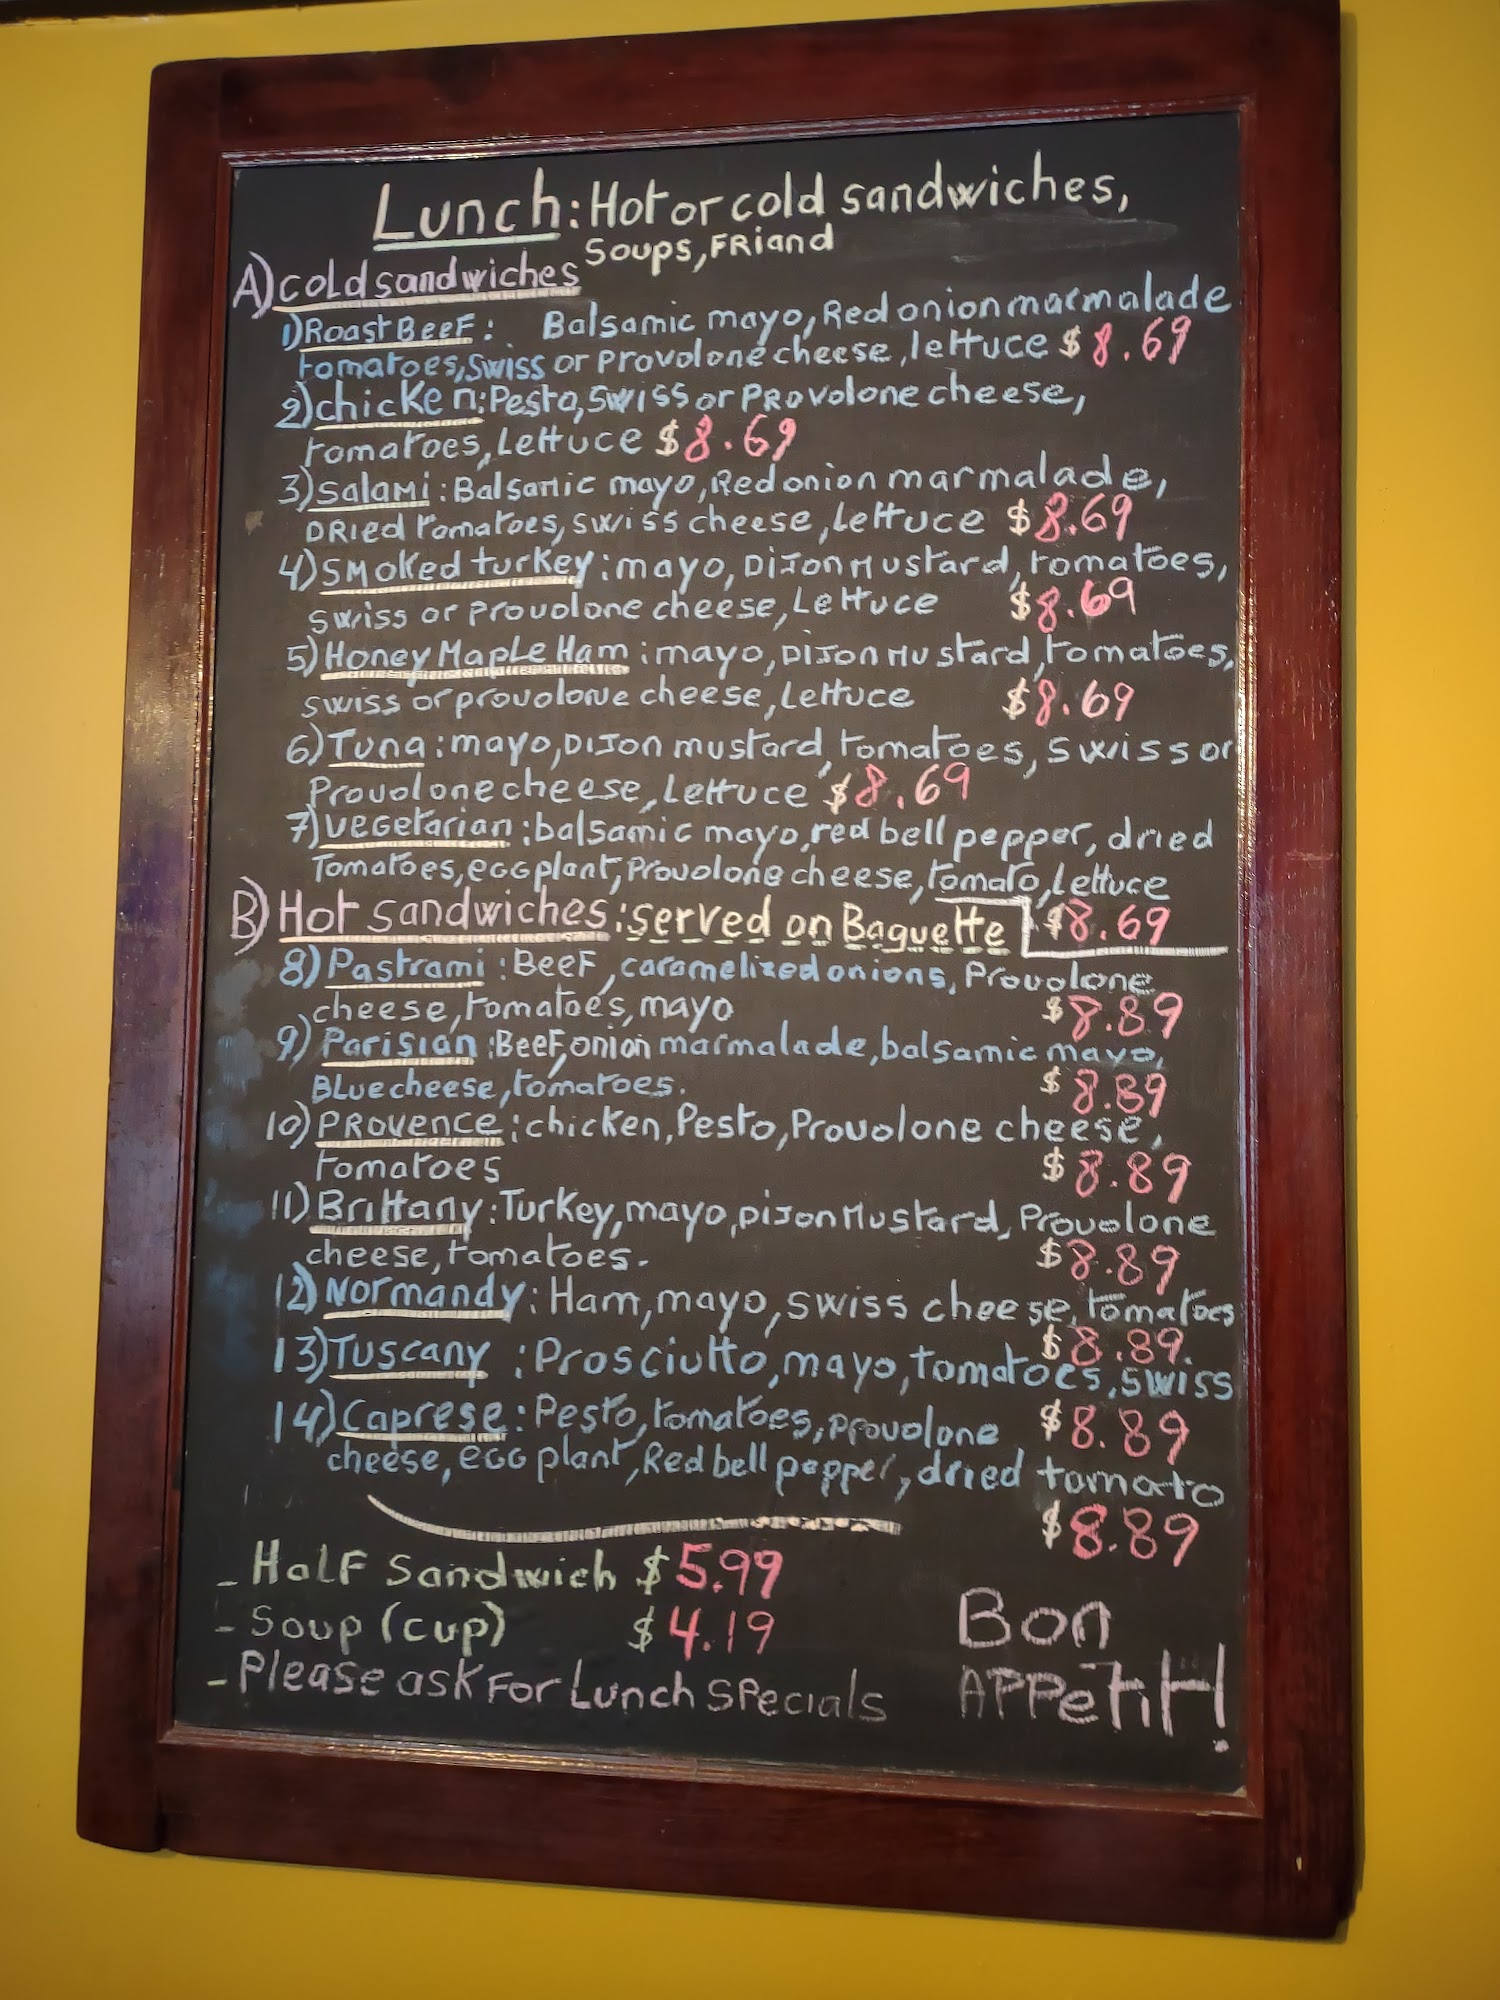 Lunch: Hot or cold sandwiches,
Soups, Friand
A) cold sandwiches
1) Roast Beef: Balsamic mayo, Red onion marmalade
tomatoes, swiss or provolone cheese, lettuce $8.69
2) chicken: Pesto, swiss or provolone cheese,
tomatoes, Lettuce $8.69
3) Salami: Balsamic mayo, Red onion marmalade,
Dried tomatoes, swiss cheese, lettuce $8.69
4) Smoked turkey: mayo, Dijon Mustard, tomatoes,
swiss or provolone cheese, Lettuce $8.69
5) Honey Maple Ham: mayo, Dijon Mustard, tomatoes,
swiss or provolone cheese, lettuce $8.69
6) Tuna: mayo, Dijon mustard, tomatoes, swiss or
Provolone cheese, Lettuce $8.69
7) Vegetarian: balsamic mayo, red bell pepper, dried
Tomatoes, egg plant, Provolone cheese, tomato, Lettuce
B) Hot sandwiches: served on Baguette $8.69
8) Pastrami: Beef, caramelized onions, Provolone
cheese, tomatoes, mayo $8.89
9) Parisian: Beef, onion marmalade, balsamic mayo,
Blue cheese, tomatoes. $8.89
10) Provence: chicken, Pesto, Provolone cheese,
tomatoes $8.89
11) Brittany: Turkey, mayo, Dijon Mustard, Provolone
cheese, tomatoes. $8.89
12) Normandy: Ham, mayo, swiss cheese, tomatoes
$8.89.
13) Tuscany: Prosciutto, mayo, tomatoes, swiss
14) Caprese: Pesto, tomatoes, provolone $8.89
cheese, egg plant, Red bell pepper, dried tomato
$8.89
- Half Sandwich $5.99
- Soup (cup) $4.19
- Please ask for Lunch Specials
Bon
Appetit!